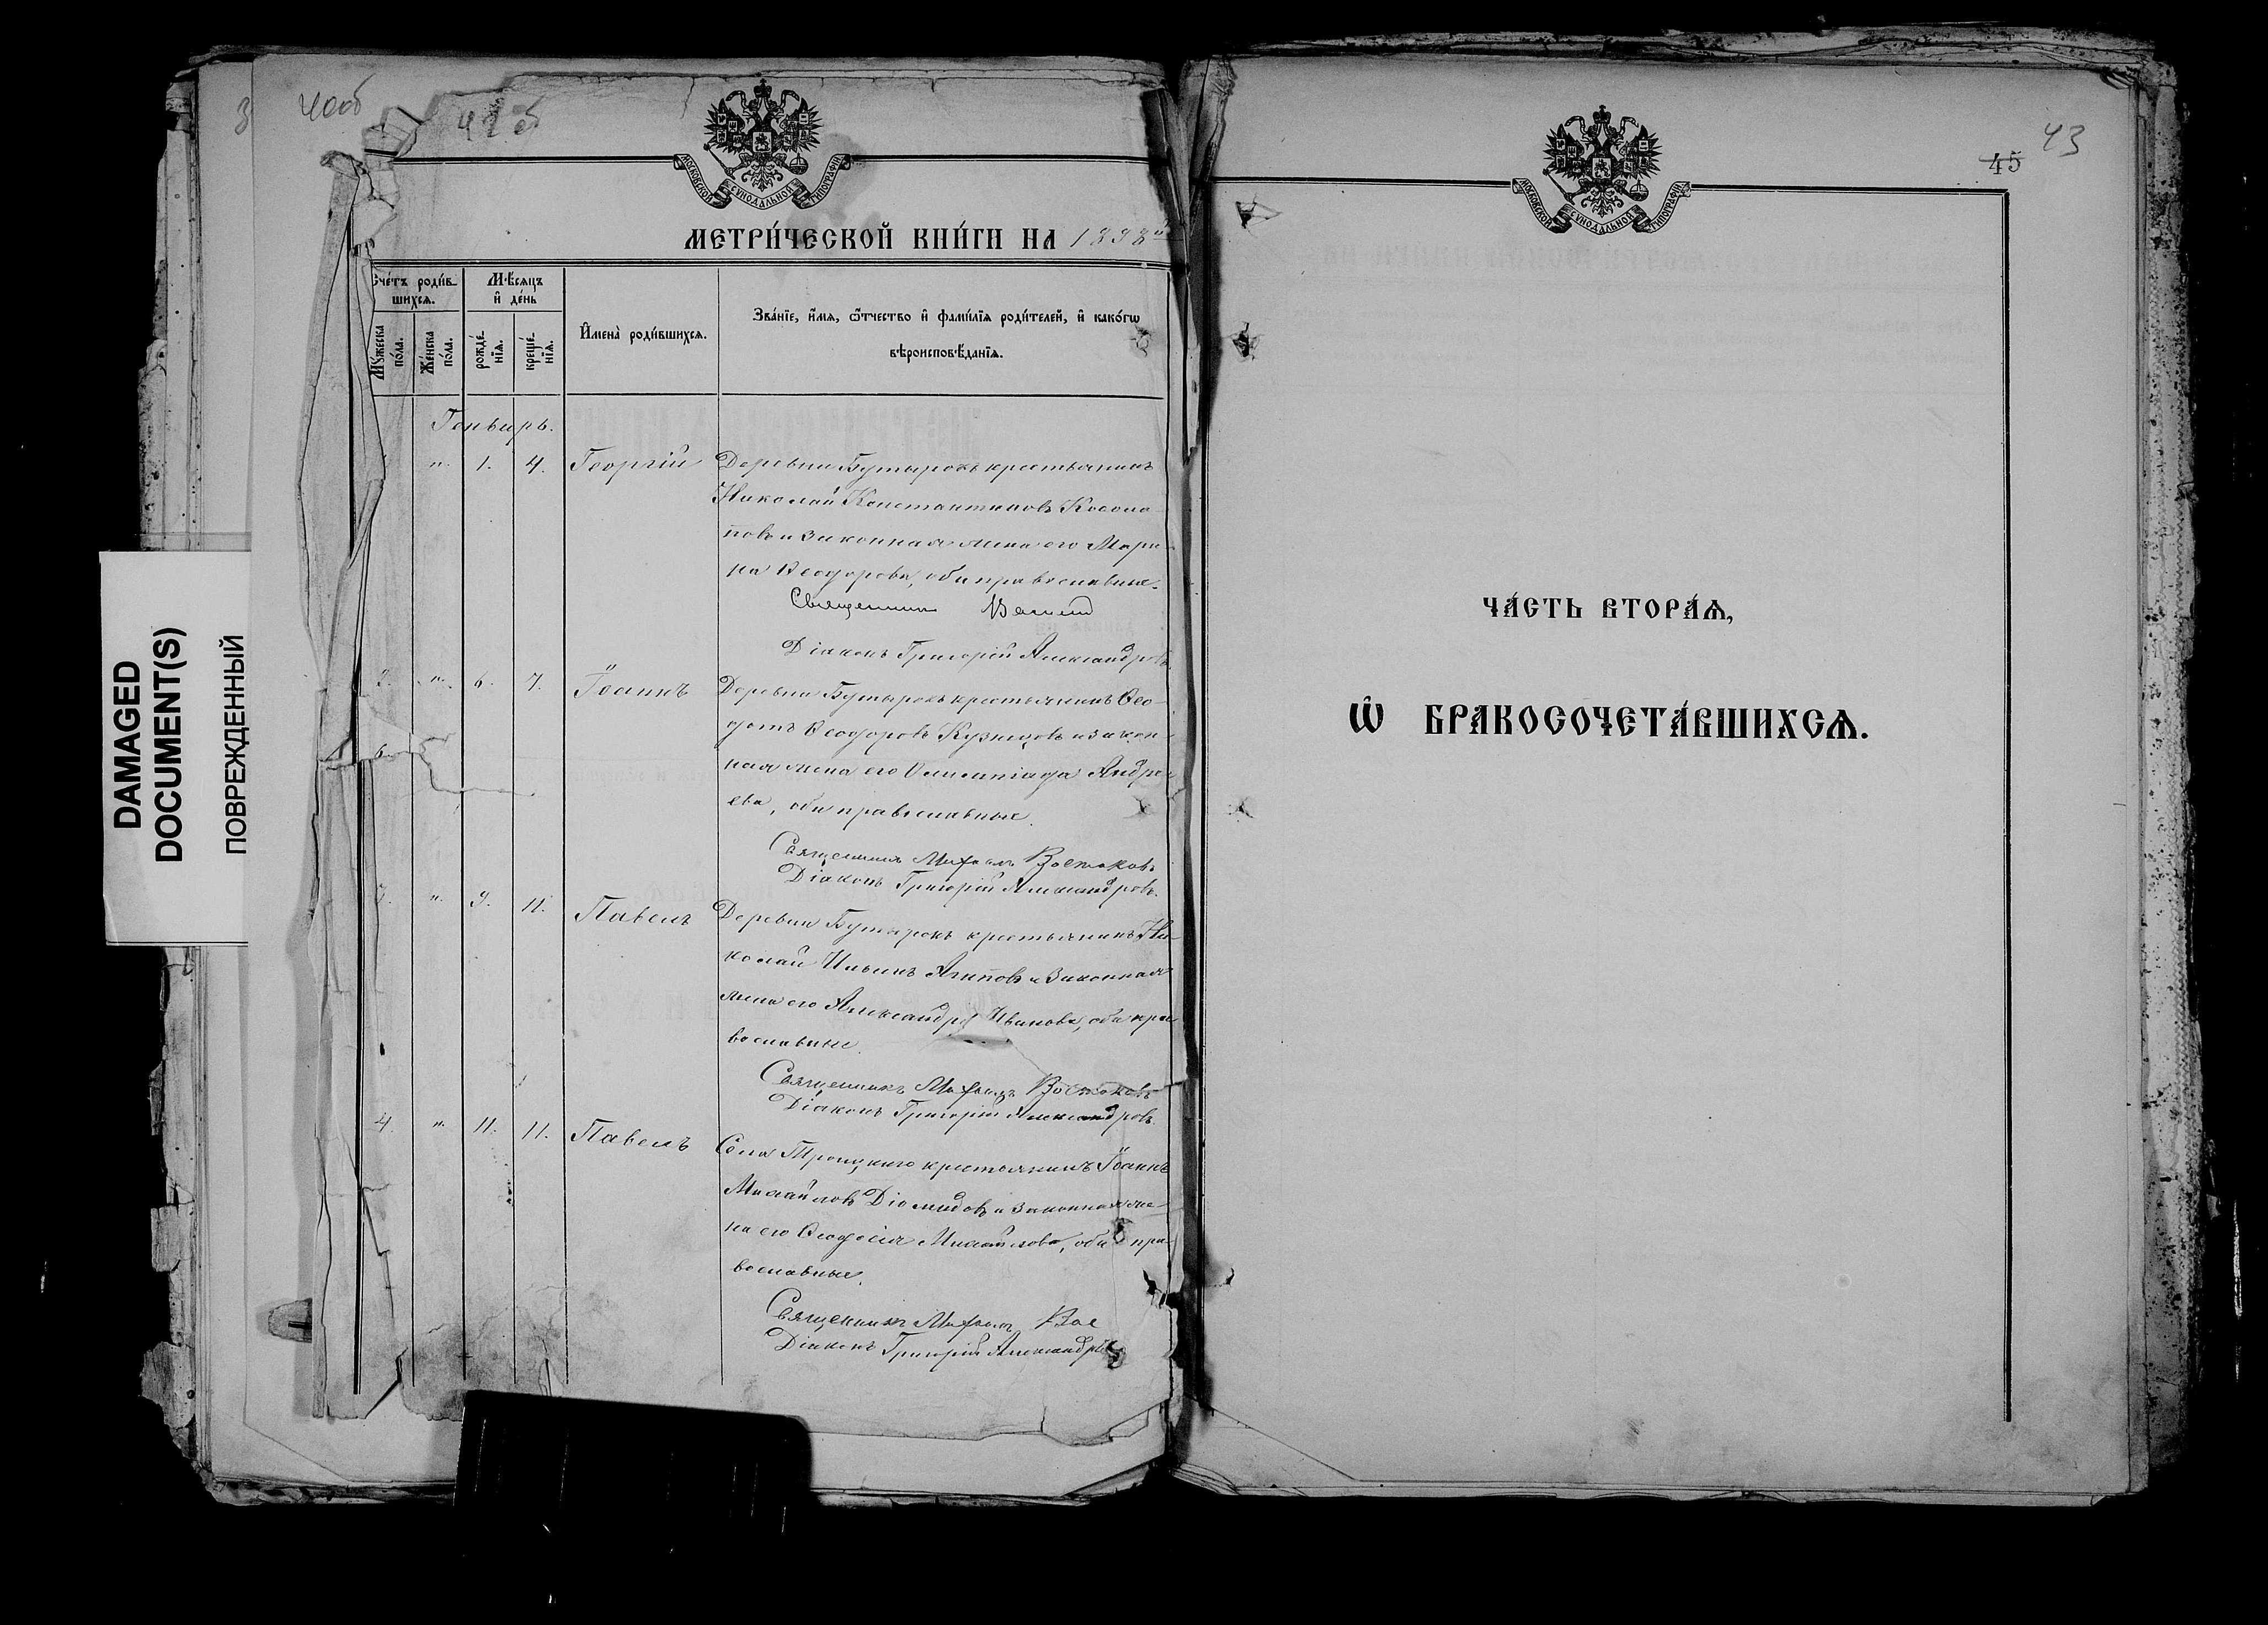 DAMAGED
DOCUMENT(S)
ПОВРЕЖДЕННЫЙ
40об
МОСКОВСКОЙ СѴНОДАЛЬНОЙ ТИПОГРАФІИ
МЕТРИ́ЧЕСКОЙ КНИ́ГИ НА 1898
Сче́тъ роди́в-
шихсѧ.
Мѣ́сѧцъ
и҆ де́нь
Мꙋ́жеска
по́ла.
Же́нска
по́ла.
рожде́-
нїѧ.
креще́-
нїѧ.
И҆мена̀ роди́вшихсѧ.
Зва́нїе, и҆́мѧ, ѻ҆́тчество и҆ фами́лїѧ роди́телей, и҆ како́гѡ
вѣроисповѣ́данїѧ.
Генварь.
„ 1. 4. Георгій
Деревни Бутырокъ крестьянинъ
Николай Константиновъ Косола-
повъ и законная жена его Мари-
на Ѳеодорова, оба православные.
Священникъ
Діаконъ Григорій Александровъ.
2. „ 6. 7. Іоаннъ
Деревни Бутырокъ крестьянинъ Ѳео-
дотъ Ѳеодоровъ Кузнецовъ и закон-
ная жена его Олимпіада Андре-
ева, оба православные.
Священникъ Михаилъ Востоковъ
Діаконъ Григорій Александровъ.
3. „ 9. 11. Павелъ
Деревни Бутырокъ крестьянинъ Ни-
колай Ильинъ Агаповъ и законная
жена его Александра Иванова, оба пра-
вославные.
Священникъ Михаилъ Востоковъ
Діаконъ Григорій Александровъ.
4. „ 11. 11. Павелъ
Села Троицкаго крестьянинъ Іоаннъ
Михайловъ Діомидовъ и законная же-
на его Ѳеодосія Михайлова, оба пра-
вославные.
Священникъ Михаилъ Вос
Діаконъ Григорій Александровъ
МОСКОВСКОЙ СѴНОДАЛЬНОЙ ТИПОГРАФІИ
45
43
ЧА́СТЬ ВТОРА́Ѧ,
Ѽ БРАКОСОЧЕТА́ВШИХСѦ.